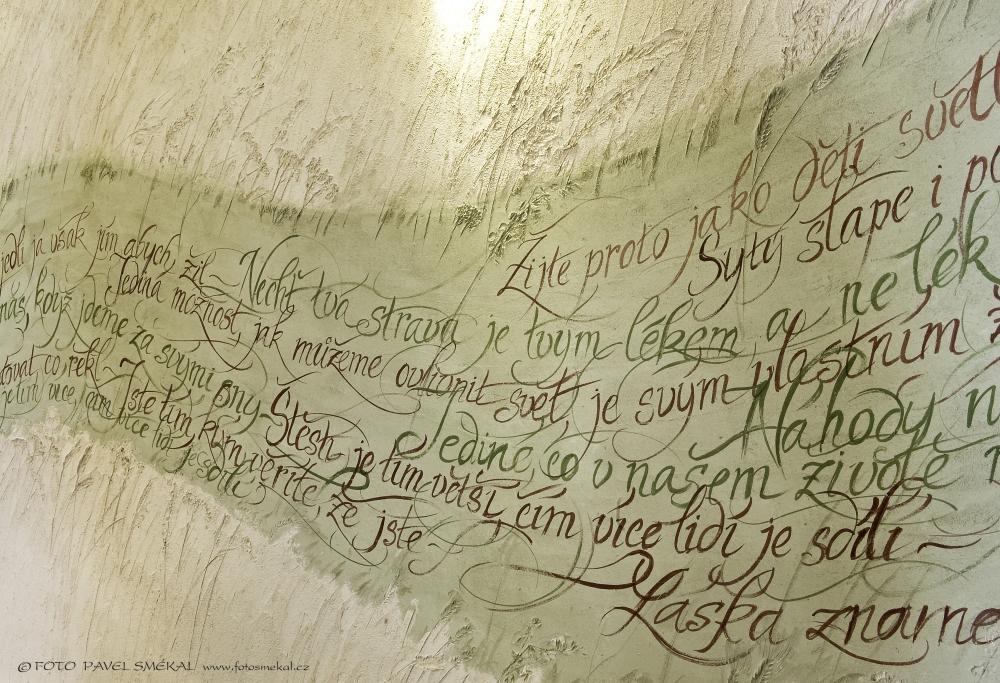 Žijte proto jako děti světl
Sytý slape i po
jedli já však jím abych žil ~ Nechť tvá strava je tvým lékem a ne lék
Jediná možnost, jak můžeme ovlivnit svět, je svým vlastním ž
nás, když jdeme za svými sny ~ Jediné, co v našem životě n
Náhody n
co řekl ~ Štěstí je tím větší, čím více lidí je sdílí ~
je tím více lidí je sdílí
Jste tím, kým věříte, že jste ~
Láska zname
© FOTO PAVEL SMÉKAL www.fotosmekal.cz